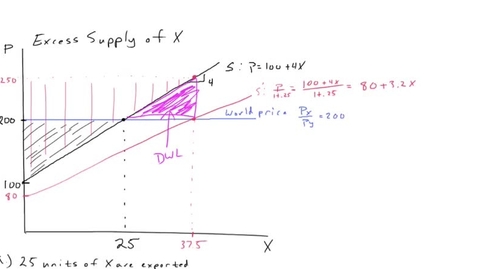 Excess Supply of X
P
S: P=100+4X
4
250
S: P/1+.25 = 100+4X/1+.25 = 80+3.2X
200
world price Px/Py = 200
DWL
100
80
25
37.5
X
) 25 units of X are exported